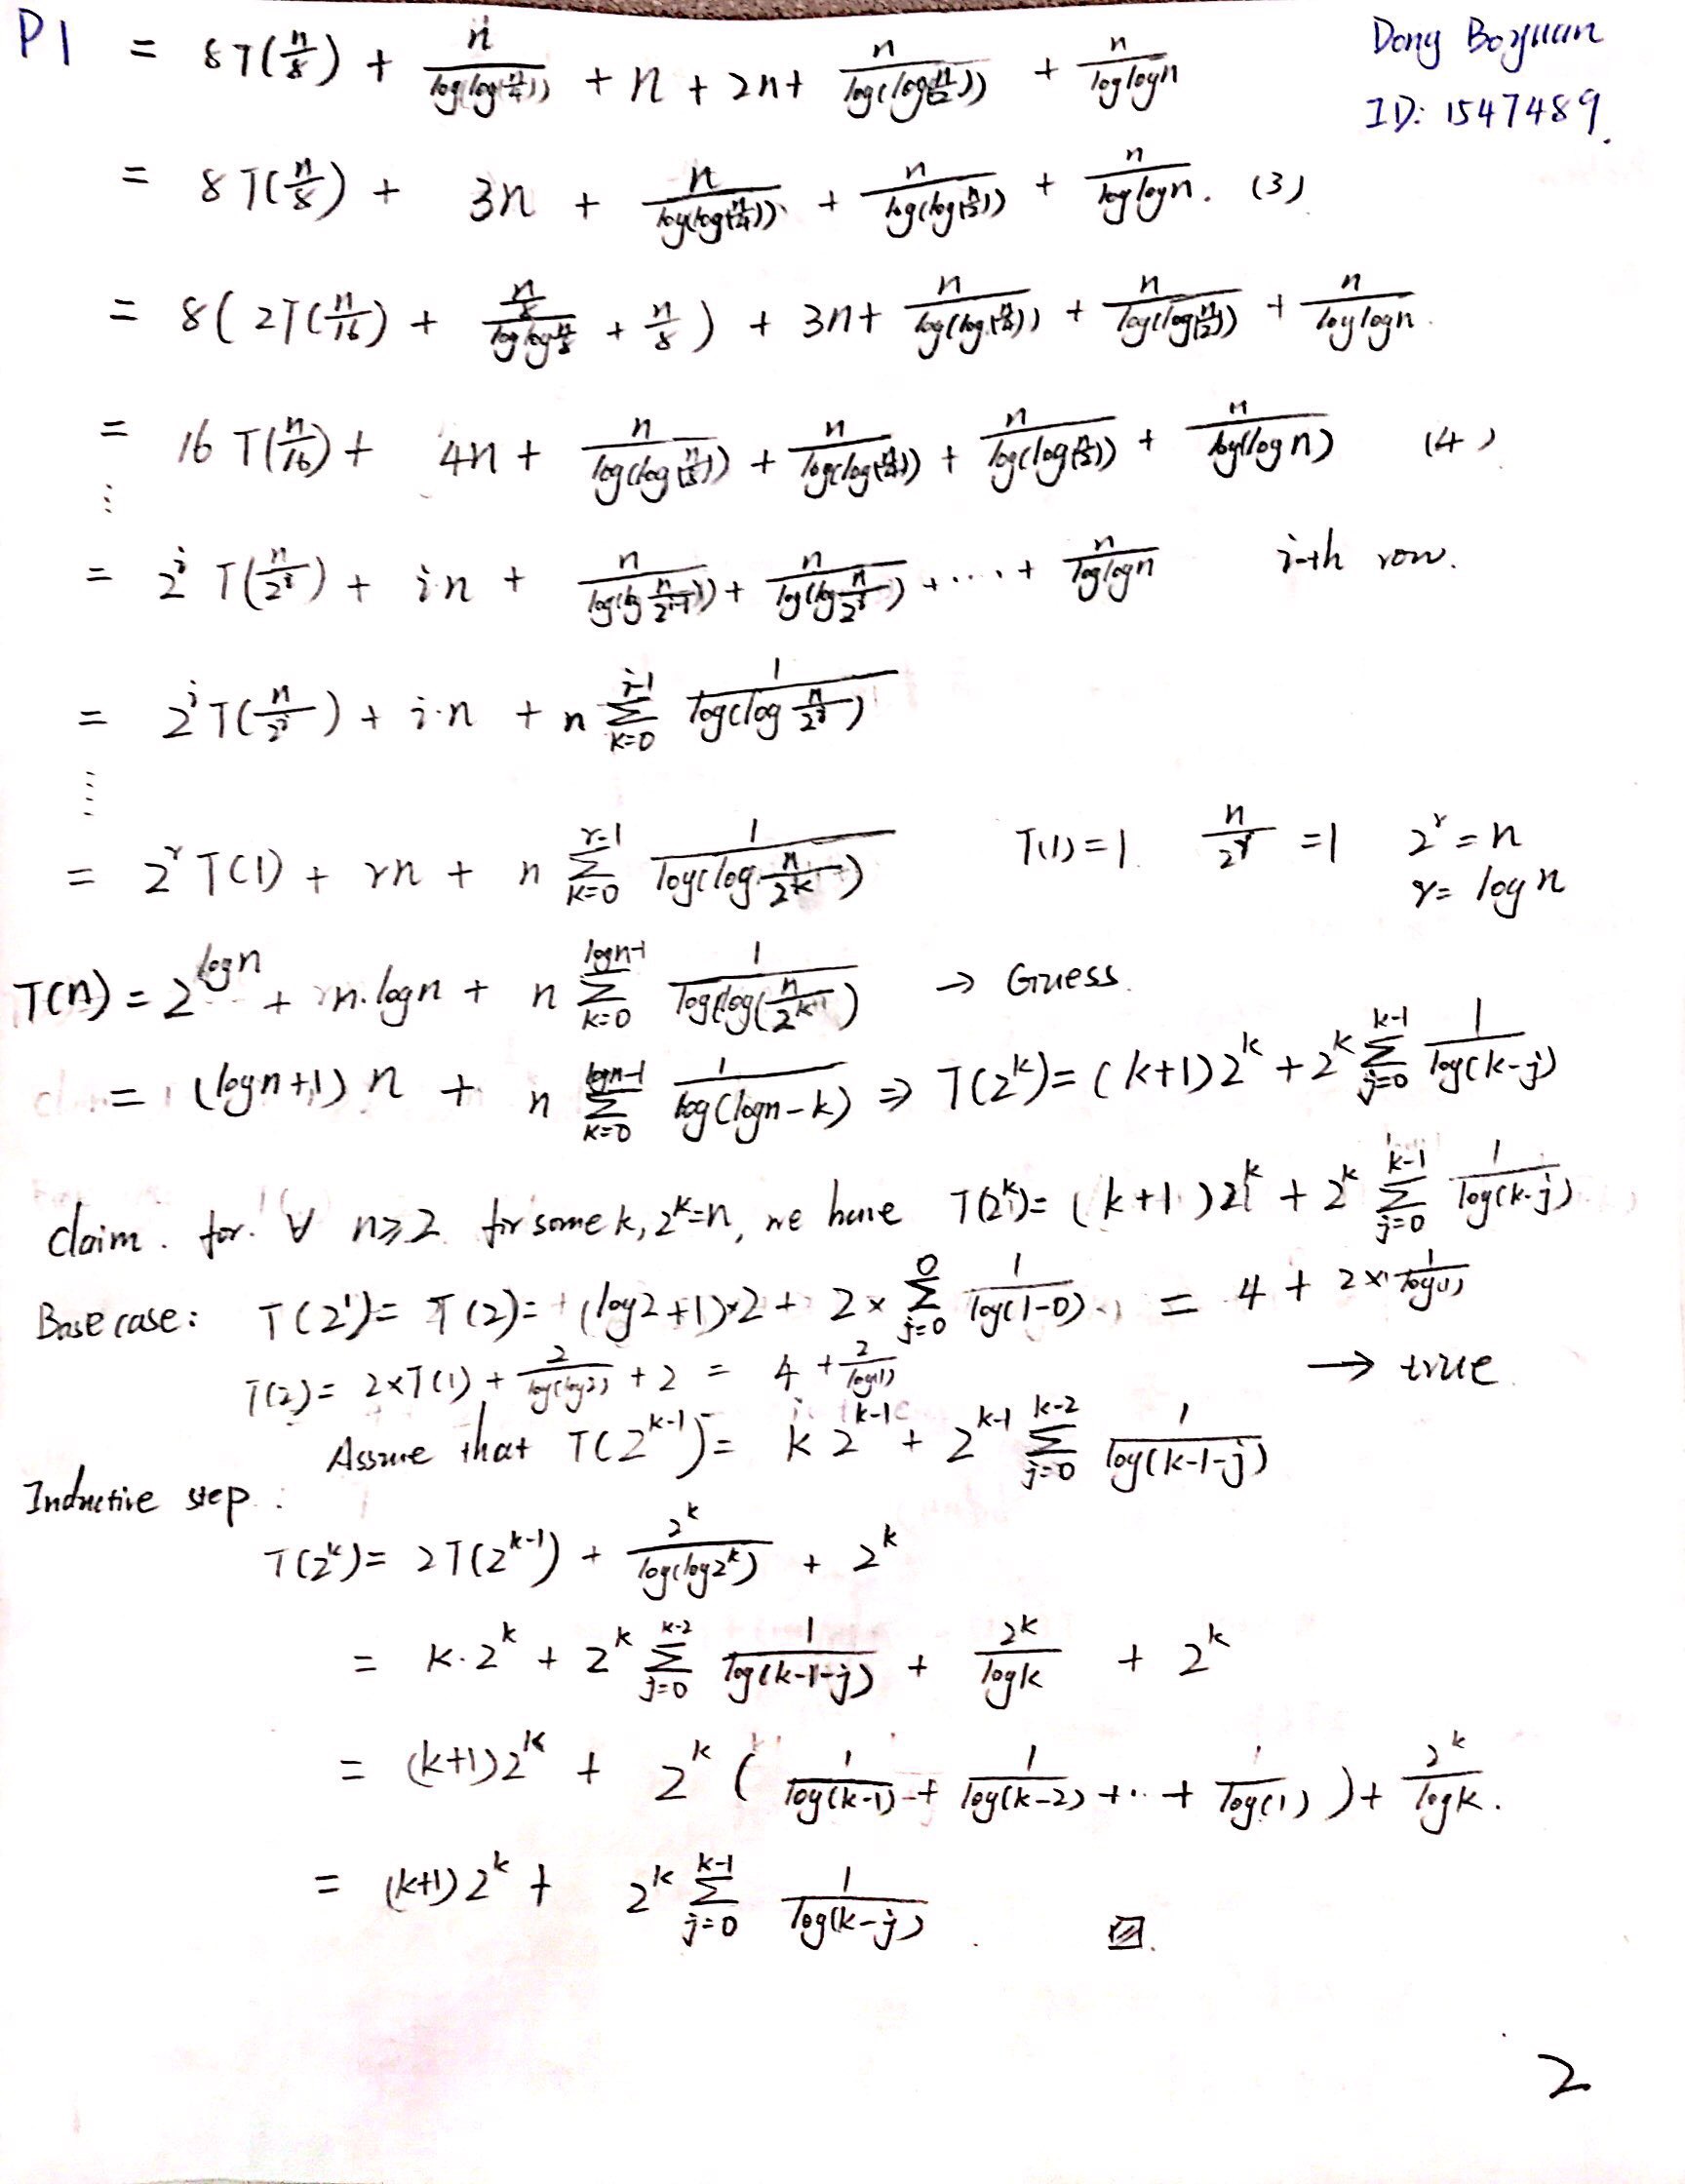 P1 = 8T(n/8) + n/log(log(n/4)) + n + 2n + n/log(log(n/2)) + n/loglogn
Dong Boyuan
ID: 1547489.
= 8T(n/8) + 3n + n/log(log(n/4)) + n/log(log(n/2)) + n/loglogn. (3)
= 8(2T(n/16) + (n/8)/(loglog n/8) + n/8) + 3n + n/log(log(n/4)) + n/log(log(n/2)) + n/loglogn.
= 16T(n/16) + 4n + n/log(log(n/8)) + n/log(log(n/4)) + n/log(log(n/2)) + n/log(logn) (4)
⋮
= 2^i T(n/2^i) + in + n/log(log n/2^(i-1)) + n/log(log n/2^i) + .... + n/loglogn i-th row.
= 2^i T(n/2^i) + i·n + n Σ_{k=0}^{i-1} 1/log(log n/2^i)
⋮
= 2^r T(1) + rn + n Σ_{k=0}^{r-1} 1/log(log n/2^k) T(1)=1. n/2^r = 1 2^r = n
r = logn
T(n) = 2^logn + n·logn + n Σ_{k=0}^{logn-1} 1/log(log(n/2^k)) → Guess.
= (logn+1)n + n Σ_{k=0}^{logn-1} 1/log(logn-k) ⇒ T(2^k) = (k+1)2^k + 2^k Σ_{j=0}^{k-1} 1/log(k-j)
Claim. for. ∀ n≥2 for some k, 2^k=n, we have T(2^k) = (k+1)2^k + 2^k Σ_{j=0}^{k-1} 1/log(k-j)
Base case: T(2^1) = T(2) = (log2+1)×2 + 2× Σ_{j=0}^{0} 1/log(1-0) = 4 + 2× 1/log(1)
T(2) = 2×T(1) + 2/log(log2) + 2 = 4 + 2/log(1) → true.
Assume that T(2^(k-1)) = k 2^(k-1) + 2^(k-1) Σ_{j=0}^{k-2} 1/log(k-1-j)
Inductive step:
T(2^k) = 2T(2^(k-1)) + 2^k/log(log2^k) + 2^k
= k·2^k + 2^k Σ_{j=0}^{k-2} 1/log(k-1-j) + 2^k/logk + 2^k
= (k+1)2^k + 2^k (1/log(k-1) + 1/log(k-2) + ... + 1/log(1)) + 2^k/logk.
= (k+1)2^k + 2^k Σ_{j=0}^{k-1} 1/log(k-j).
2